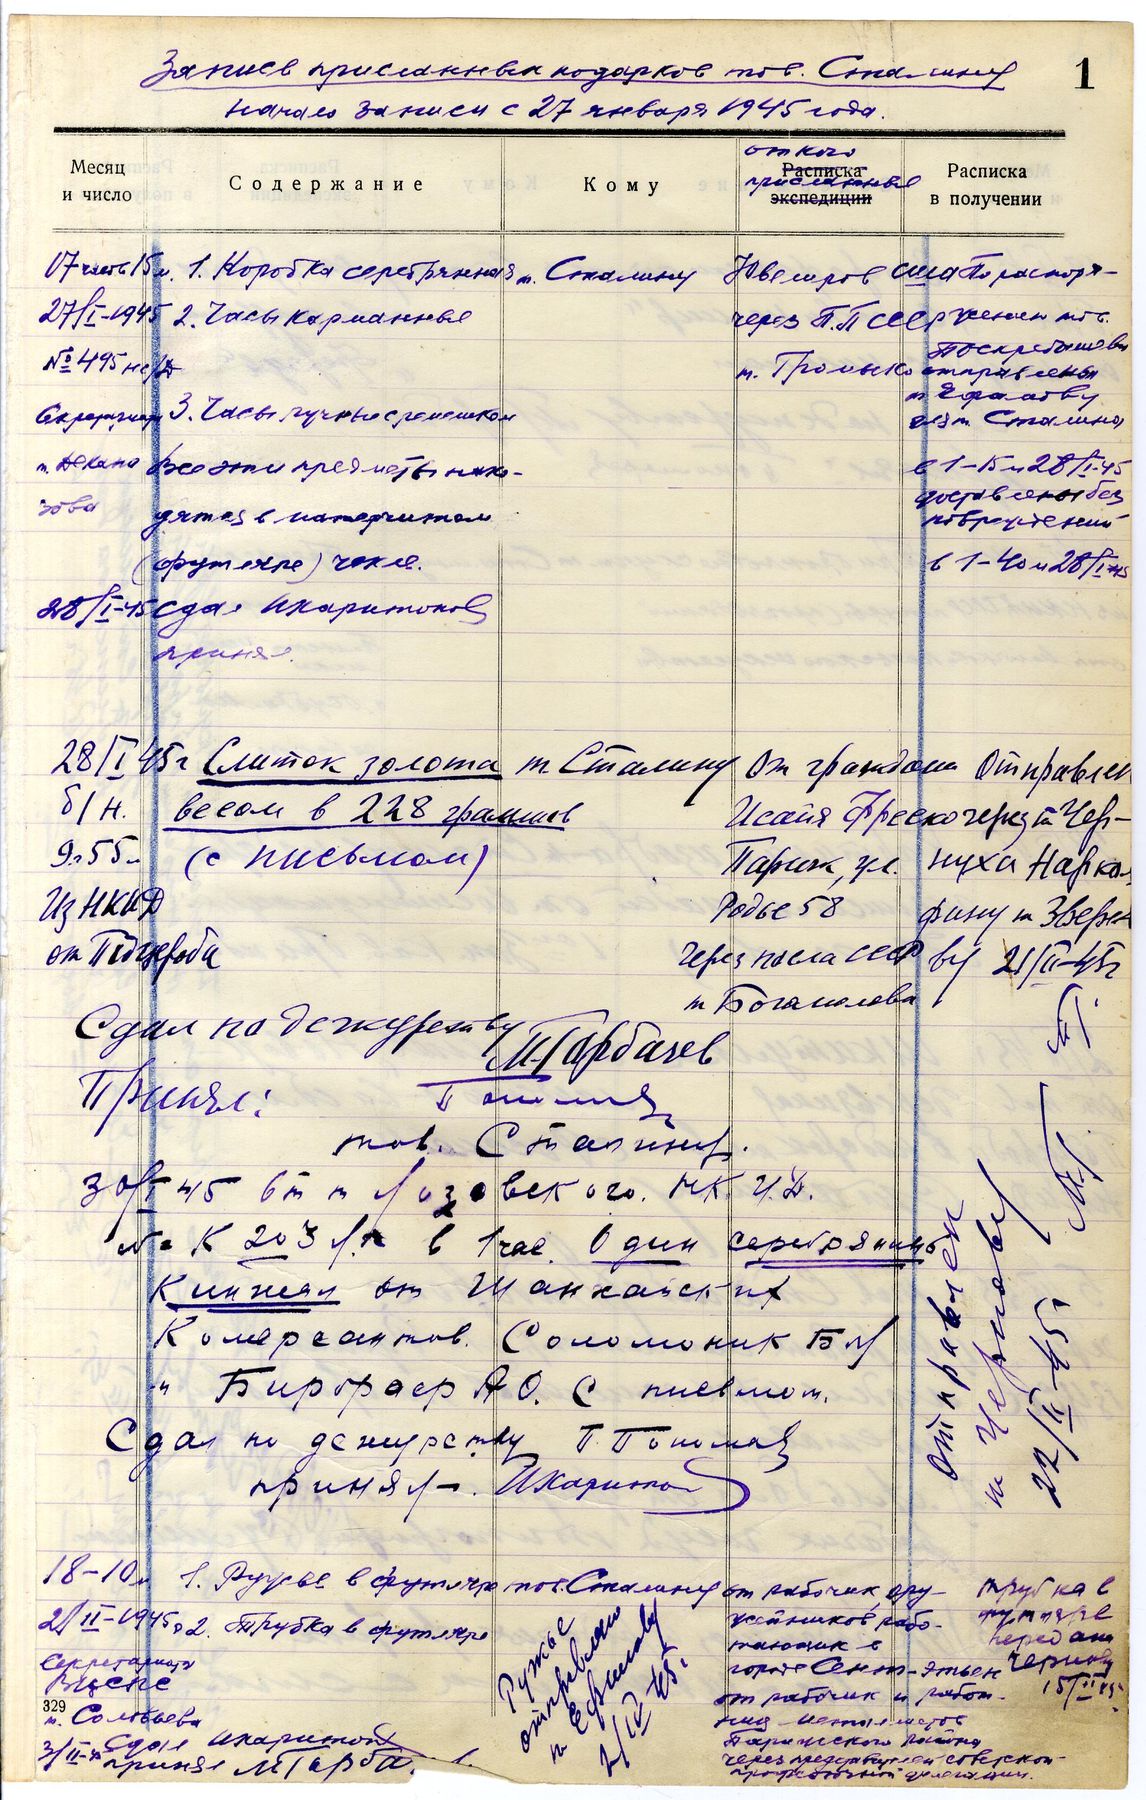 Запись присланных подарков тов. Сталину
1
начало записи с 27 января 1945 года.
Месяц и число
Содержание
Кому
от кого присланные
Расписка экспедиции
Расписка в получении
17 часов 15 м.
27/I-1945
№ 495
Секретариат
т. Декано
зова
28/I-45
1. Коробка серебрянная
2. Часы карманные
3. Часы ручные с ремешком
Все эти предметы нахо-
дятся в
(футляре) чехле.
сдал ИХаритонов
принял.
т. Сталину
Ювелиров сша
через П.П СССР
т. Громыко
По распоря-
жению тов.
Поскребышева
отправлены
т. Ефимову
для т. Сталина
в 1-15 м 28/I-45
доставлены без
повреждений
в 1-40 м 28/I-45
28/I 45 г
б/н.
9 ч 55 м
Из НКИД
от Подцероба
Слиток золота
весом в 228 граммов
(с письмом)
т. Сталину
От гражданина
Исайя Фреско
Париж, ул.
Родье 58
через посла СССР
т Богомолова
Отправлен
через т Чер-
нуха Нарком
фину т Звере
ву 21/II-45 г
МГ.
Сдал по дежурству
МГорбачев
Принял:
тов. Сталину.
30/I 45 от т Лозовского. НКИД.
№ К 203 в 1 час. Один серебрянный
Кинжал от Шанхайских
Комерсантов. Соломоник БМ
и Бирбраер АО. С письмом.
Сдал по дежурству
принял –. ИХаритонов
Отправлен
т Чернову
22/II-45 г
МГ.
18-10 м
2/II-1945 г
Секретариата
ВЦСПС
329
т. Соловьева
3/II-45 сдал ИХаритонов
принял МГорба
1. Ружье в футляре
2. Трубка в футляре
тов. Сталину
Ружье
отправлено
т Ефимову
2/IV 45 г.
от рабочих ору-
жейников рабо-
тающих в
городе Сент-Этьен
от рабочих и работ-
ниц металистов
Парижского района
через представителей советской
профсоюзной делегации.
трубка в
футляре
передана
Чернову
15/II 45 г.